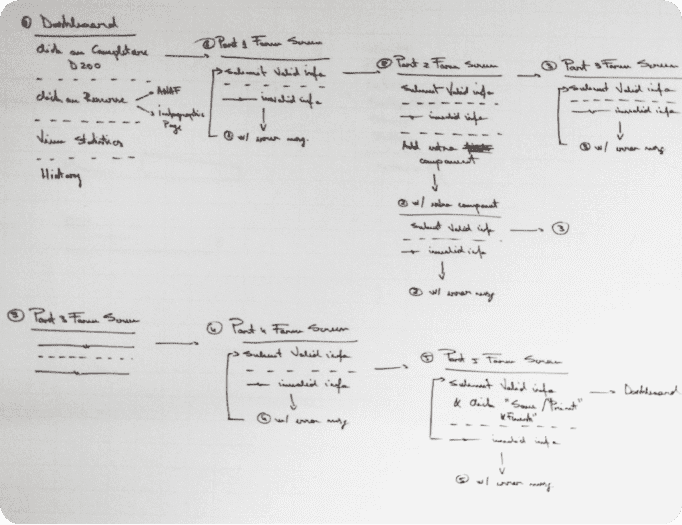 Dashboard
click on Completare
D200
click on Resurse
ANAF
Page
View Statistics
History
① Part 1 Form Screen
submit valid info
invalid info
① w/ error msg.
② Part 2 Form Screen
submit valid info
invalid info
Add extra
component
② w/ extra component
submit valid info
③
invalid info
② w/ error msg
③ Part 3 Form Screen
submit valid info
invalid info
③ w/ error msg
③ Part 3 Form Screen
④ Part 4 Form Screen
submit valid info
invalid info
④ w/ error msg
⑤ Part 5 Form Screen
submit valid info
& click "Save / Print"
Dashboard
invalid info
⑤ w/ error msg